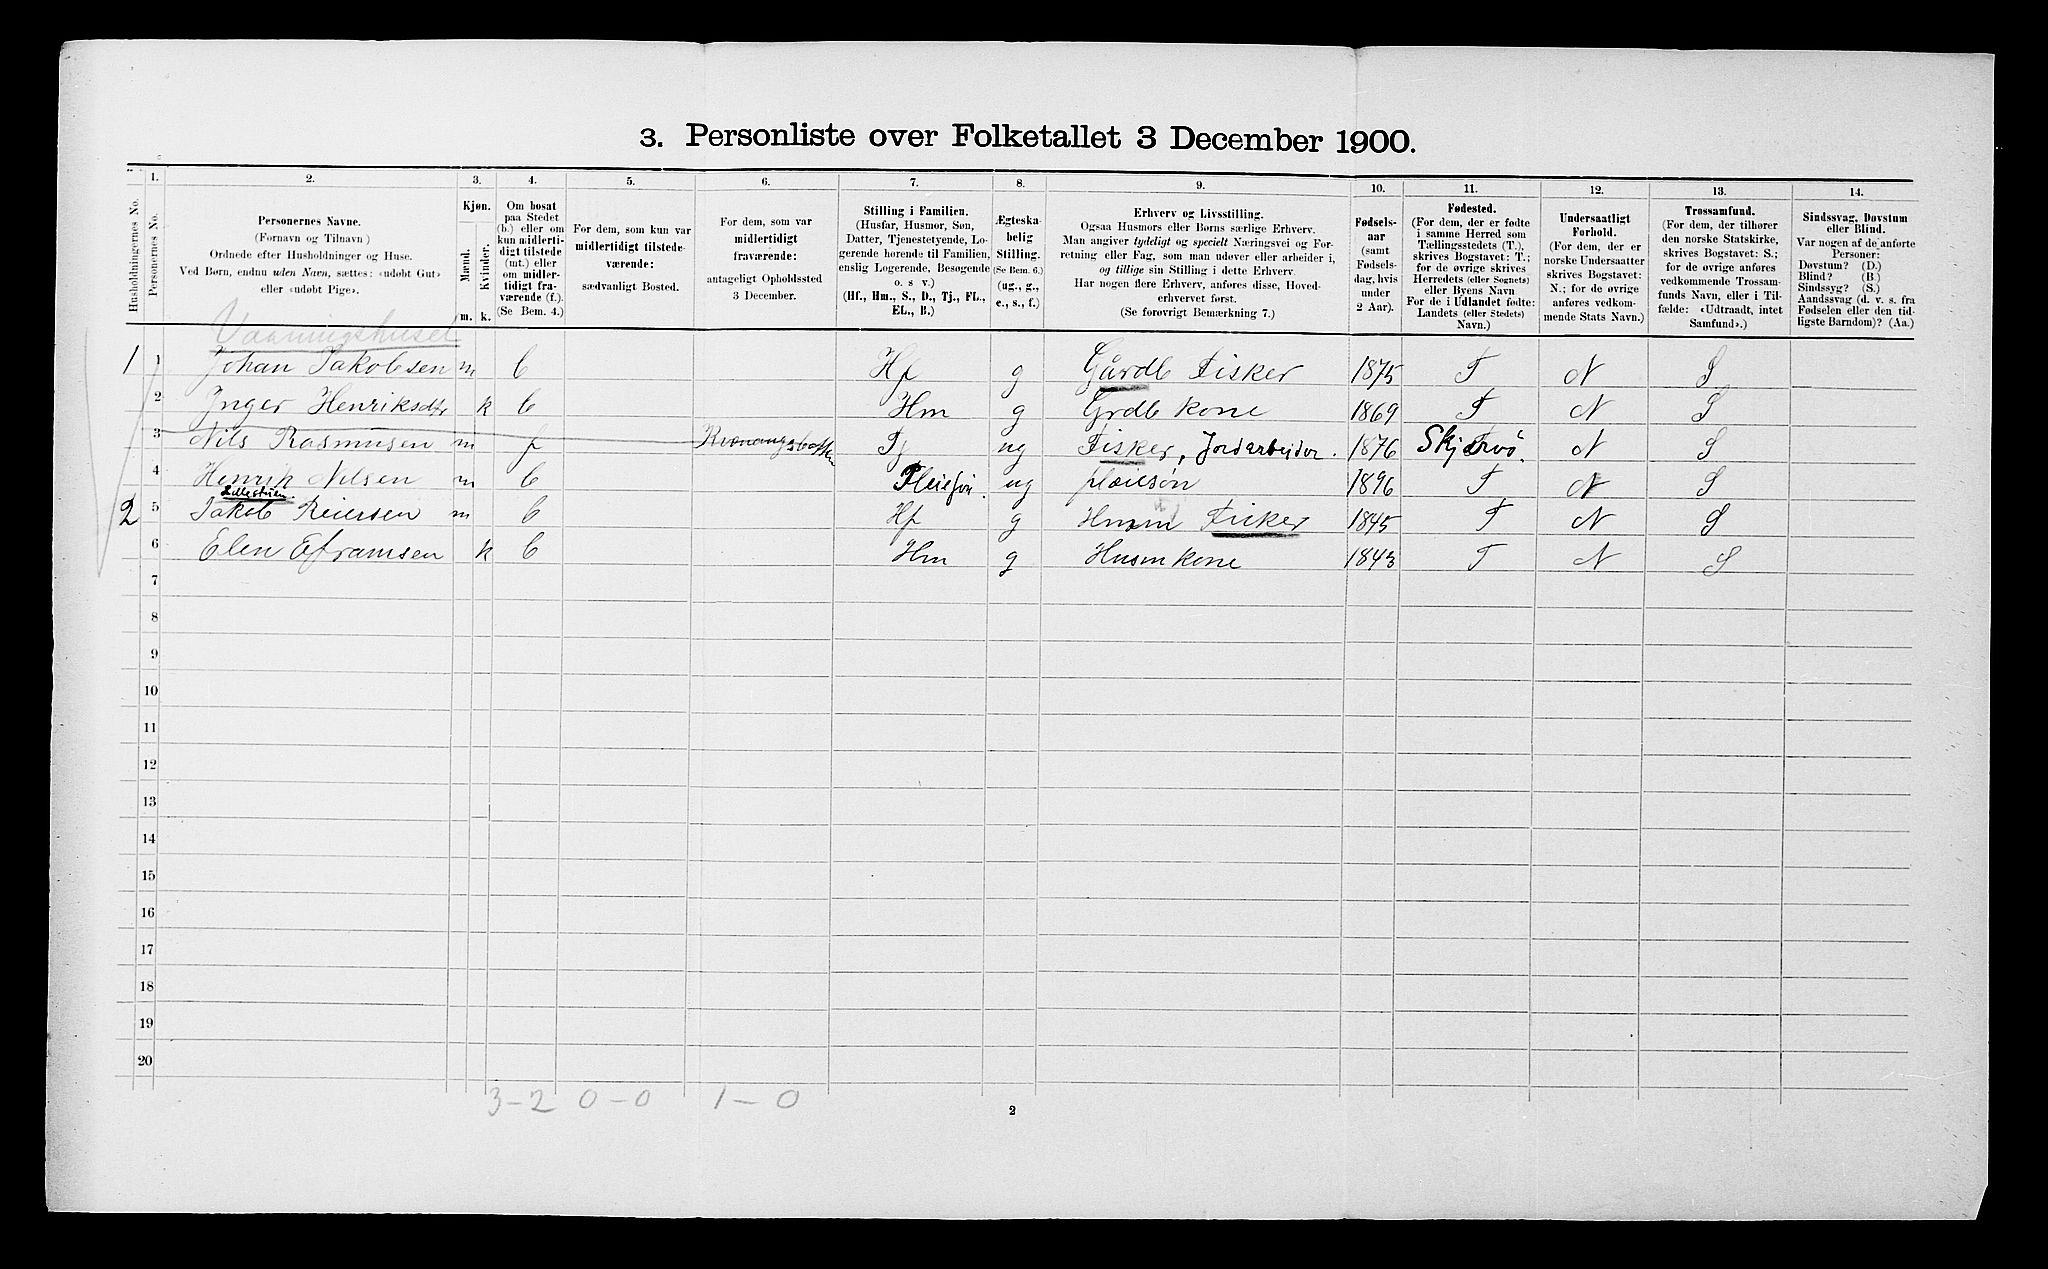 3. Personliste over Folketallet 3 December 1900.
1. 2. 3. 4. 5. 6. 7. 8. 9. 10. 11. 12. 13. 14.
Husholdningernes No.
Personernes No.
Personernes Navne.
(Fornavn og Tilnavn)
Ordnede efter Husholdninger og Huse.
Ved Børn, endnu uden Navn, sættes: «udøbt Gut»
eller «udøbt Pige».
Kjøn.
Mænd.
Kvinder.
m. k.
Om bosat
paa Stedet
(b.) eller om
kun midlerti-
digt tilstede
(mt.) eller
om midler-
tidigt fra-
værende (f.).
(Se Bem. 4.)
For dem, som kun var
midlertidigt tilstede-
værende:
sædvanligt Bosted.
For dem, som var
midlertidigt
fraværende:
antageligt Opholdssted
3 December.
Stilling i Familien.
(Husfar, Husmor, Søn,
Datter, Tjenestetyende, Lo-
gerende hørende til Familien,
enslig Logerende, Besøgende
o. s v.)
(Hf., Hm., S., D., Tj., FL.,
EL., B.)
Ægteska-
belig
Stilling.
(Se Bem. 6.)
(ug., g.,
e., s., f.)
Erhverv og Livsstilling.
Ogsaa Husmors eller Børns særlige Erhverv.
Man angiver tydeligt og specielt Næringsvei og For-
retning eller Fag, som man udøver eller arbeider i,
og tillige sin Stilling i dette Erhverv.
Har nogen flere Erhverv, anføres disse, Hoved-
erhvervet først.
(Se forøvrigt Bemærkning 7.)
Fødsels-
aar
(samt
Fødsels-
dag, hvis
under
2 Aar).
Fødested.
(For dem, der er fødte
i samme Herred som
Tællingsstedets (T.),
skrives Bogstavet: T.;
for de øvrige skrives
Herredets (eller Sognets)
eller Byens Navn
For de i Udlandet fødte:
Landets (eller Stedets)
Navn.)
Undersaatligt
Forhold.
(For dem, der er
norske Undersaatter
skrives Bogstavet:
N.; for de øvrige
anføres vedkom-
mende Stats Navn.)
Trossamfund.
(For dem, der tilhører
den norske Statskirke,
skrives Bogstavet: S.;
for de øvrige anføres
vedkommende Trossam-
funds Navn, eller i Til-
fælde: «Udtraadt, intet
Samfund».)
Sindssvag, Døvstum
eller Blind.
Var nogen af de anførte
Personer:
Døvstum? (D.)
Blind? (B.)
Sindssyg? (S.)
Aandssvag (d. v. s. fra
Fødselen eller den tid-
ligste Barndom)? (Aa.)
Vaaningshuset
1 1 Johan Jakobsen m b Hf g Gårdb Fisker 1875 T N S
2 Inger Henriksdtr k b Hm g Grdb kone 1869 T N S
3 Nils Rasmusen m f Kvænangsbotten Tj ug Fisker, Jordarbeider. 1876 Skjervö. N S
4 Henrik Nilsen m b Pleiesøn. ug pleiesøn 1896 T N S
Lillestuen
2 5 Jakob Reiersen m b Hf g Husm Fisker 1845 T N S
6 Elen Eframsen k b Hm g Husmkone 1843 T N S
7
8
9
10
11
12
13
14
15
16
17
18
19
20
3-2 0-0 1-0
2